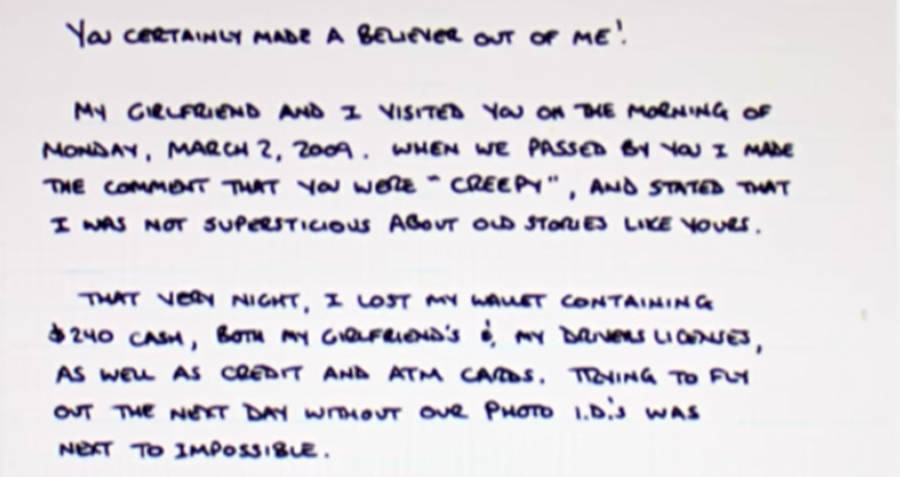 YOU CERTAINLY MADE A BELIEVER OUT OF ME!
MY GIRLFRIEND AND I VISITED YOU ON THE MORNING OF
MONDAY, MARCH 2, 2009. WHEN WE PASSED BY YOU I MADE
THE COMMENT THAT YOU WERE "CREEPY", AND STATED THAT
I WAS NOT SUPERSTICIOUS ABOUT OLD STORIES LIKE YOURS.
THAT VERY NIGHT, I LOST MY WALLET CONTAINING
$240 CASH, BOTH MY GIRLFRIEND'S & MY DRIVERS LICENSES,
AS WELL AS CREDIT AND ATM CARDS. TRYING TO FLY
OUT THE NEXT DAY WITHOUT OUR PHOTO I.D.'S WAS
NEXT TO IMPOSSIBLE.